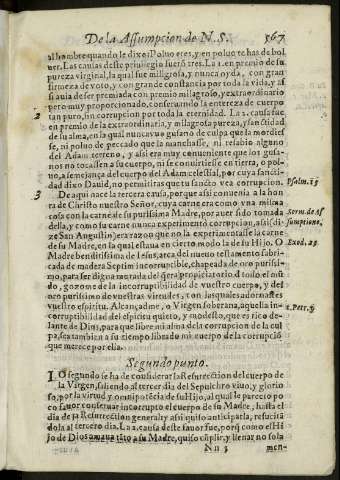 De la Assumpcion de N. S. 567
al hombre quando le dixo: Poluo eres, y en poluo te has de bol
uer. Las causas deste priuilegio fuerõ tres. La 1. en premio de su
pureza virginal, la qual fue milagrosa, y nunca oyda, con gran
firmeza de voto, y con grande constancia por toda la vida, y assi
si auia de ser premiada con premio milagroso, y extraordinario
pero muy proporcionado, conseruando la entereza de cuerpo
2
tan puro, sin corrupcion por toda la eternidad. La 2. causa fue
en premio de la extraordinaria, y milagrosa pureza, y santidad
de su alma, en la qual nunca vuo gusano de culpa que la mordiesse
se, ni poluo de peccado que la manchasse, ni resabio alguno
del Adam terreno, y assi era muy conueniente que los gusanos
nos no tocassen a su cuerpo, ni se conuirtiesse en tierra, o poluo,
uo, a semejança del cuerpo del Adam celestial, por cuya santidad
dixo Dauid, no permitiras que tu sancto vea corrupcion.
Psalm. 15
3
De aqui nace la tercera causa, porque assi conuenia a la honra
ra de Christo nuestro Señor, cuya carne era como vna misma
cosa con la carne de su purissima Madre, por auer sido tomada
Serm. de As
della, y como su carne nunca experimento corrupcion, assi (dize
sumptione.
ze San Augustin) era razon que no la experimentasse la carne
de su Madre, en la qual estaua en cierto modo la de su Hijo. O
Exod. 25
Madre benditissima de Iesus, arca del nueuo testamento fabricada
cada de madera Setim incorruptible, chapeada de oro purissimo,
para ser digna morada del propiciatorio de todo el mundo,
do, gozome de la incorruptibilidad de vuestro cuerpo, y del
oro purissimo de vuestras virtudes, con las quales adornastes
vuestro espiritu. Alcançadme, o Virgen soberana, aquella in-
1. Petr. 3
corruptibilidad del espiritu quieto, y modesto, que es rico delante
lante de Dios, para que libre mi alma de la corrupcion de la culpa,
pa, sea tambien a su tiempo librado mi cuerpo de la corrupciõ
que merece por ella.
Segundo punto.
LO segundo se ha de considerar la Resurreccion del cuerpo de
la Virgen, saliendo al tercer dia del Sepulchro viuo, y glorioso,
so, por la virtud y omnipotẽcia de su Hijo, al qual le parecio poco
co fauor conseruar incorrupto el cuerpo de su Madre, hasta el
dia de la Resurreccion general: y assi quiso anticiparla, resucitandola
dola al tercero dia. La 1. causa deste fauor fue, porq̃ como el Hijo
jo de Dios amaua tãto a su Madre, quiso cũplir, y llenar no sola
Nn 3 men-